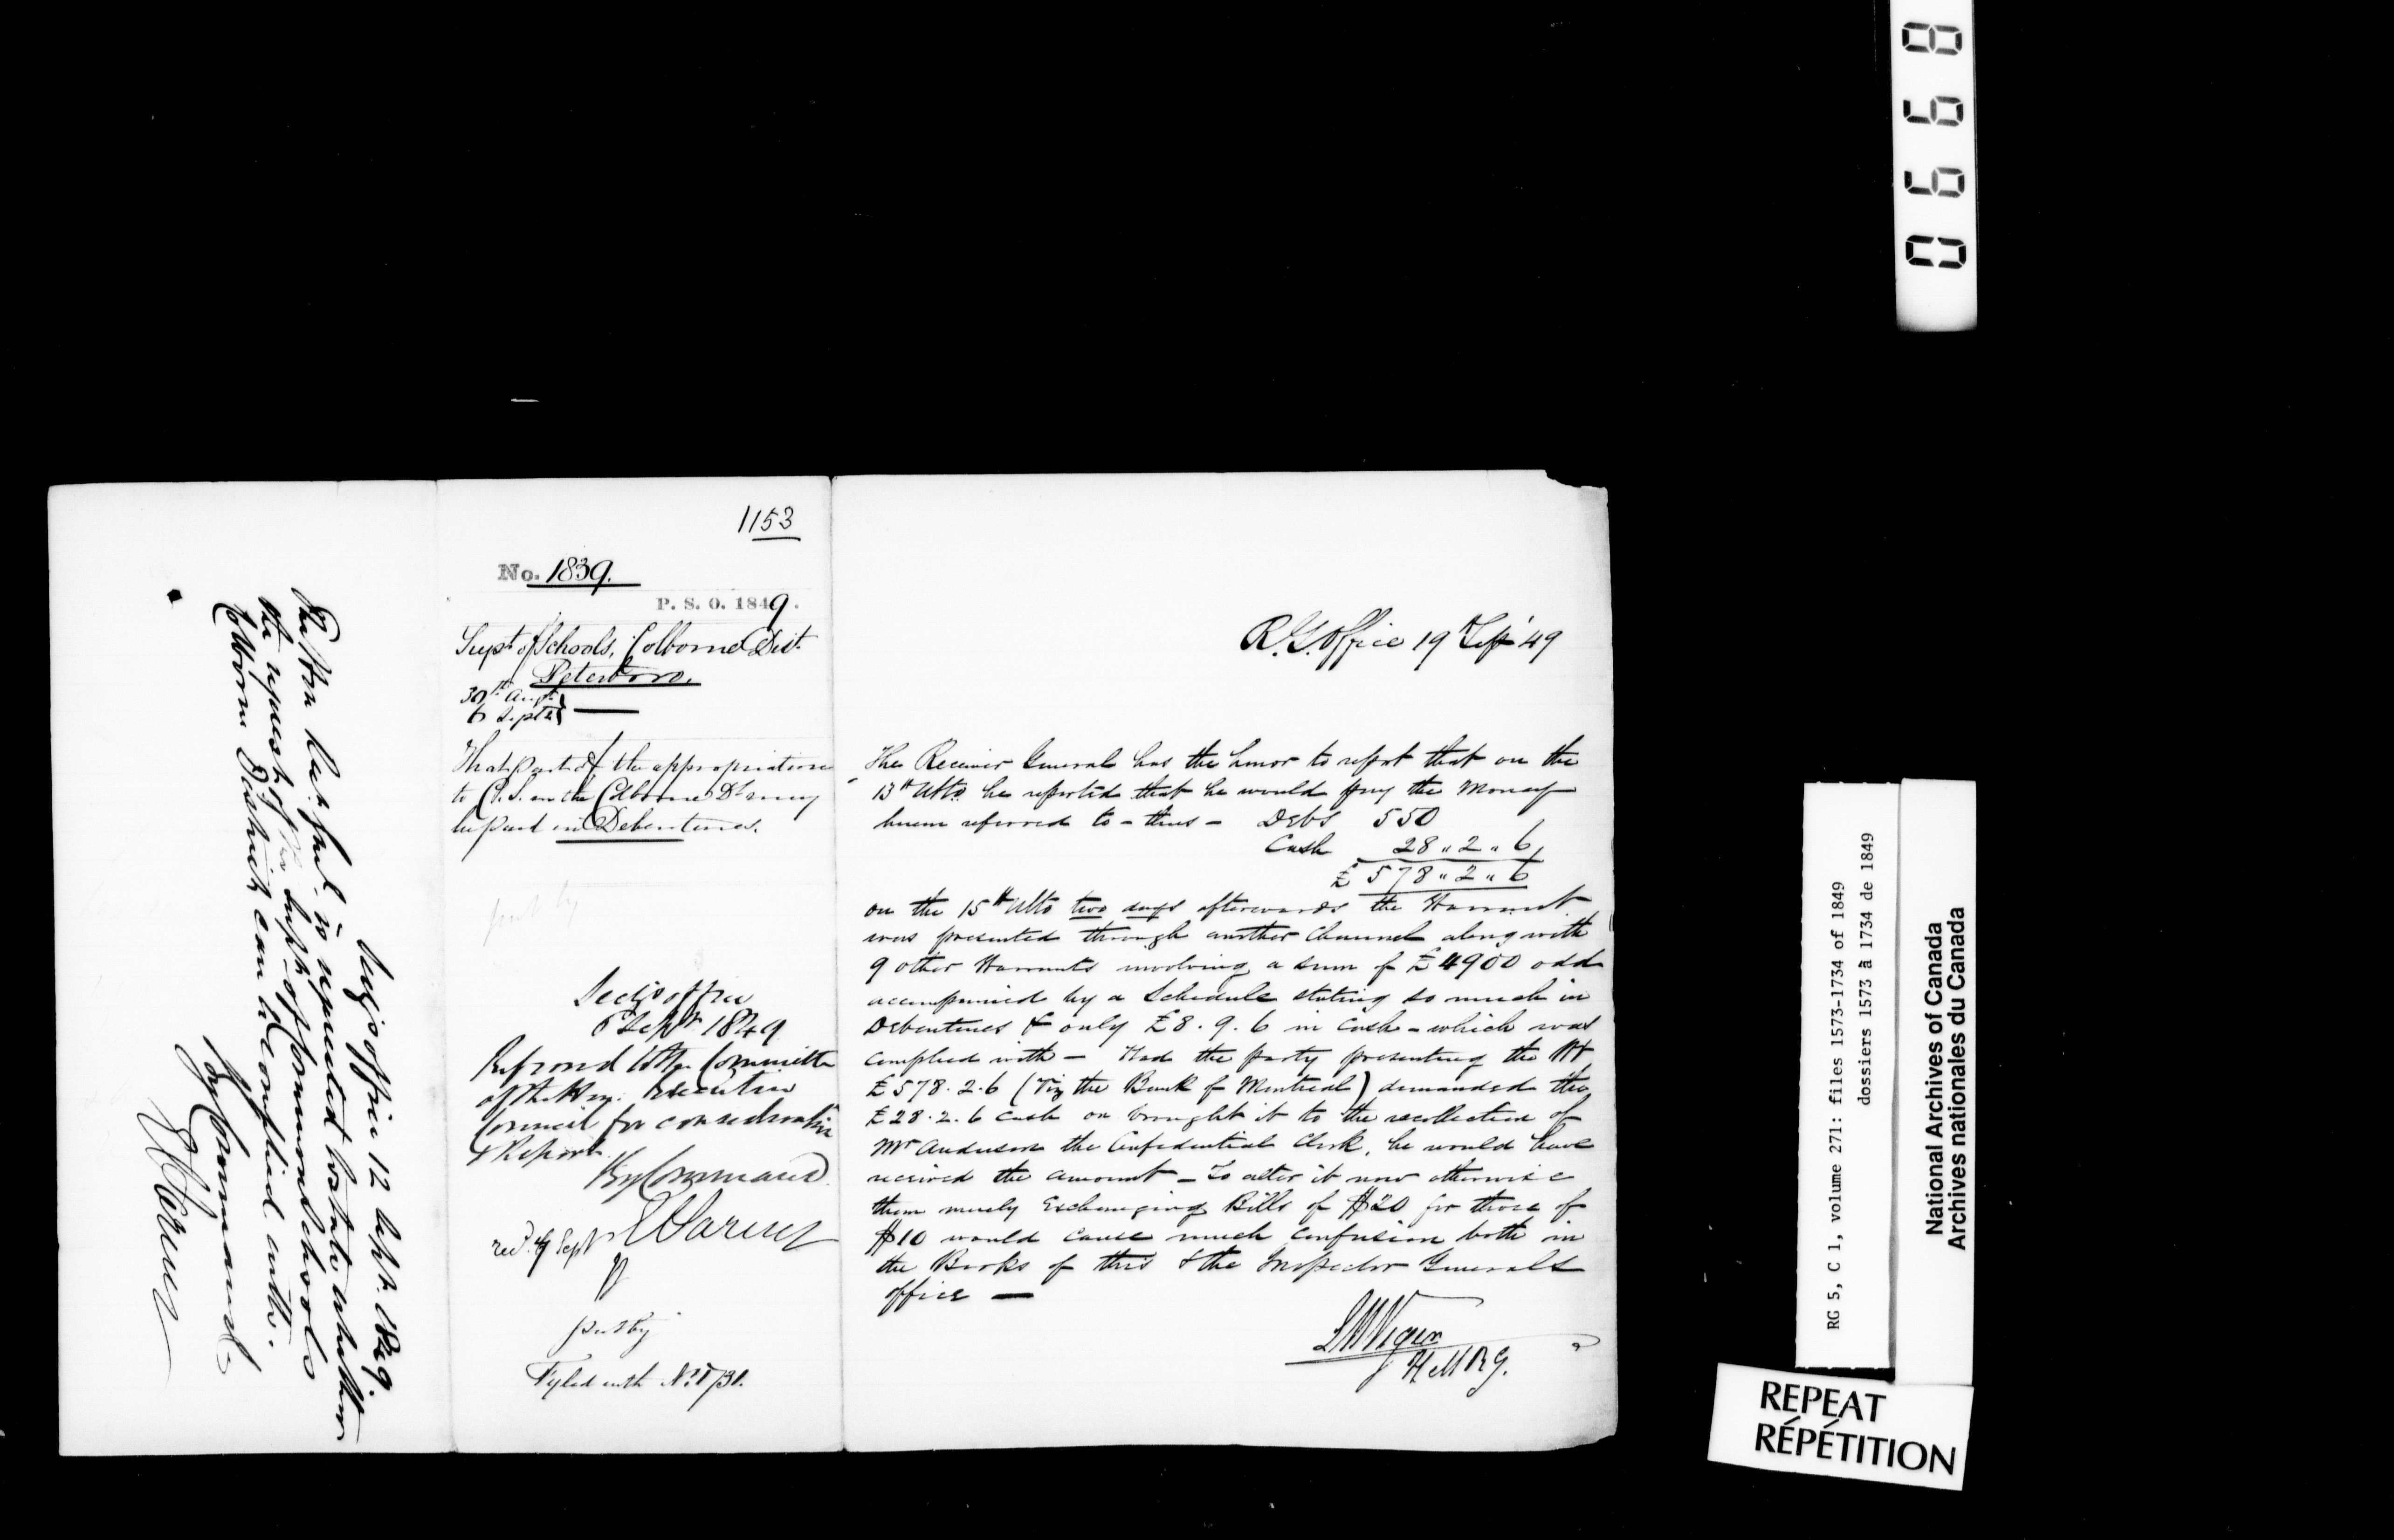 Secy's office 12 Sept. 1849.
The Hon Rec. Genl. is requested to state whether
the request of the Supt. of Common Schools
Colborne District can be complied with.
By Command
1153
No. 1839.
P. S. O. 1849.
Supt of Schools, Colborne Dist.
Peterboro.
30th Augt
6 Septr
That part of the appropriation
to C. S. in the Colborne Dt may
be paid in Debentures.
put by
Secy's office
6 Septr 1849
Referred to the Committee
of the Hon. Executive
Council for consideration
& Report.
By Command.
recd. Sept
put by
Fyled with No.
R. G. Office 19th Sept '49
The Receiver General has the honor to report that on the
13th Ulto. he reported that he would pay the Money
herein referred to - thus - Debs 550
Cash 28 " 2 " 6
£ 578 " 2 " 6
on the 15th Ulto two days afterwards the Warrant
was presented through another Channel along with
9 other Warrants involving a sum of £4900 odd
accompanied by a Schedule stating so much in
Debentures & only £8. 9. 6 in cash - which was
complied with - Had the party presenting the Wt
£578. 2. 6 (Viz the Bank of Montreal) demanded the
£28. 2. 6 cash or brought it to the recollection of
Mr Anderson the Confidential Clerk, he would have
received the amount - To alter it now otherwise
than merely Exchanging Bills of $20 for those of
$10 would cause much confusion both in
the Books of this & the Inspector Generals
office —
L M Viger
H M R G.
0 6 6 8
RG 5, C 1, volume 271: files 1573-1734 of 1849
dossiers 1573 à 1734 de 1849
National Archives of Canada
Archives nationales du Canada
REPEAT
RÉPÉTITION